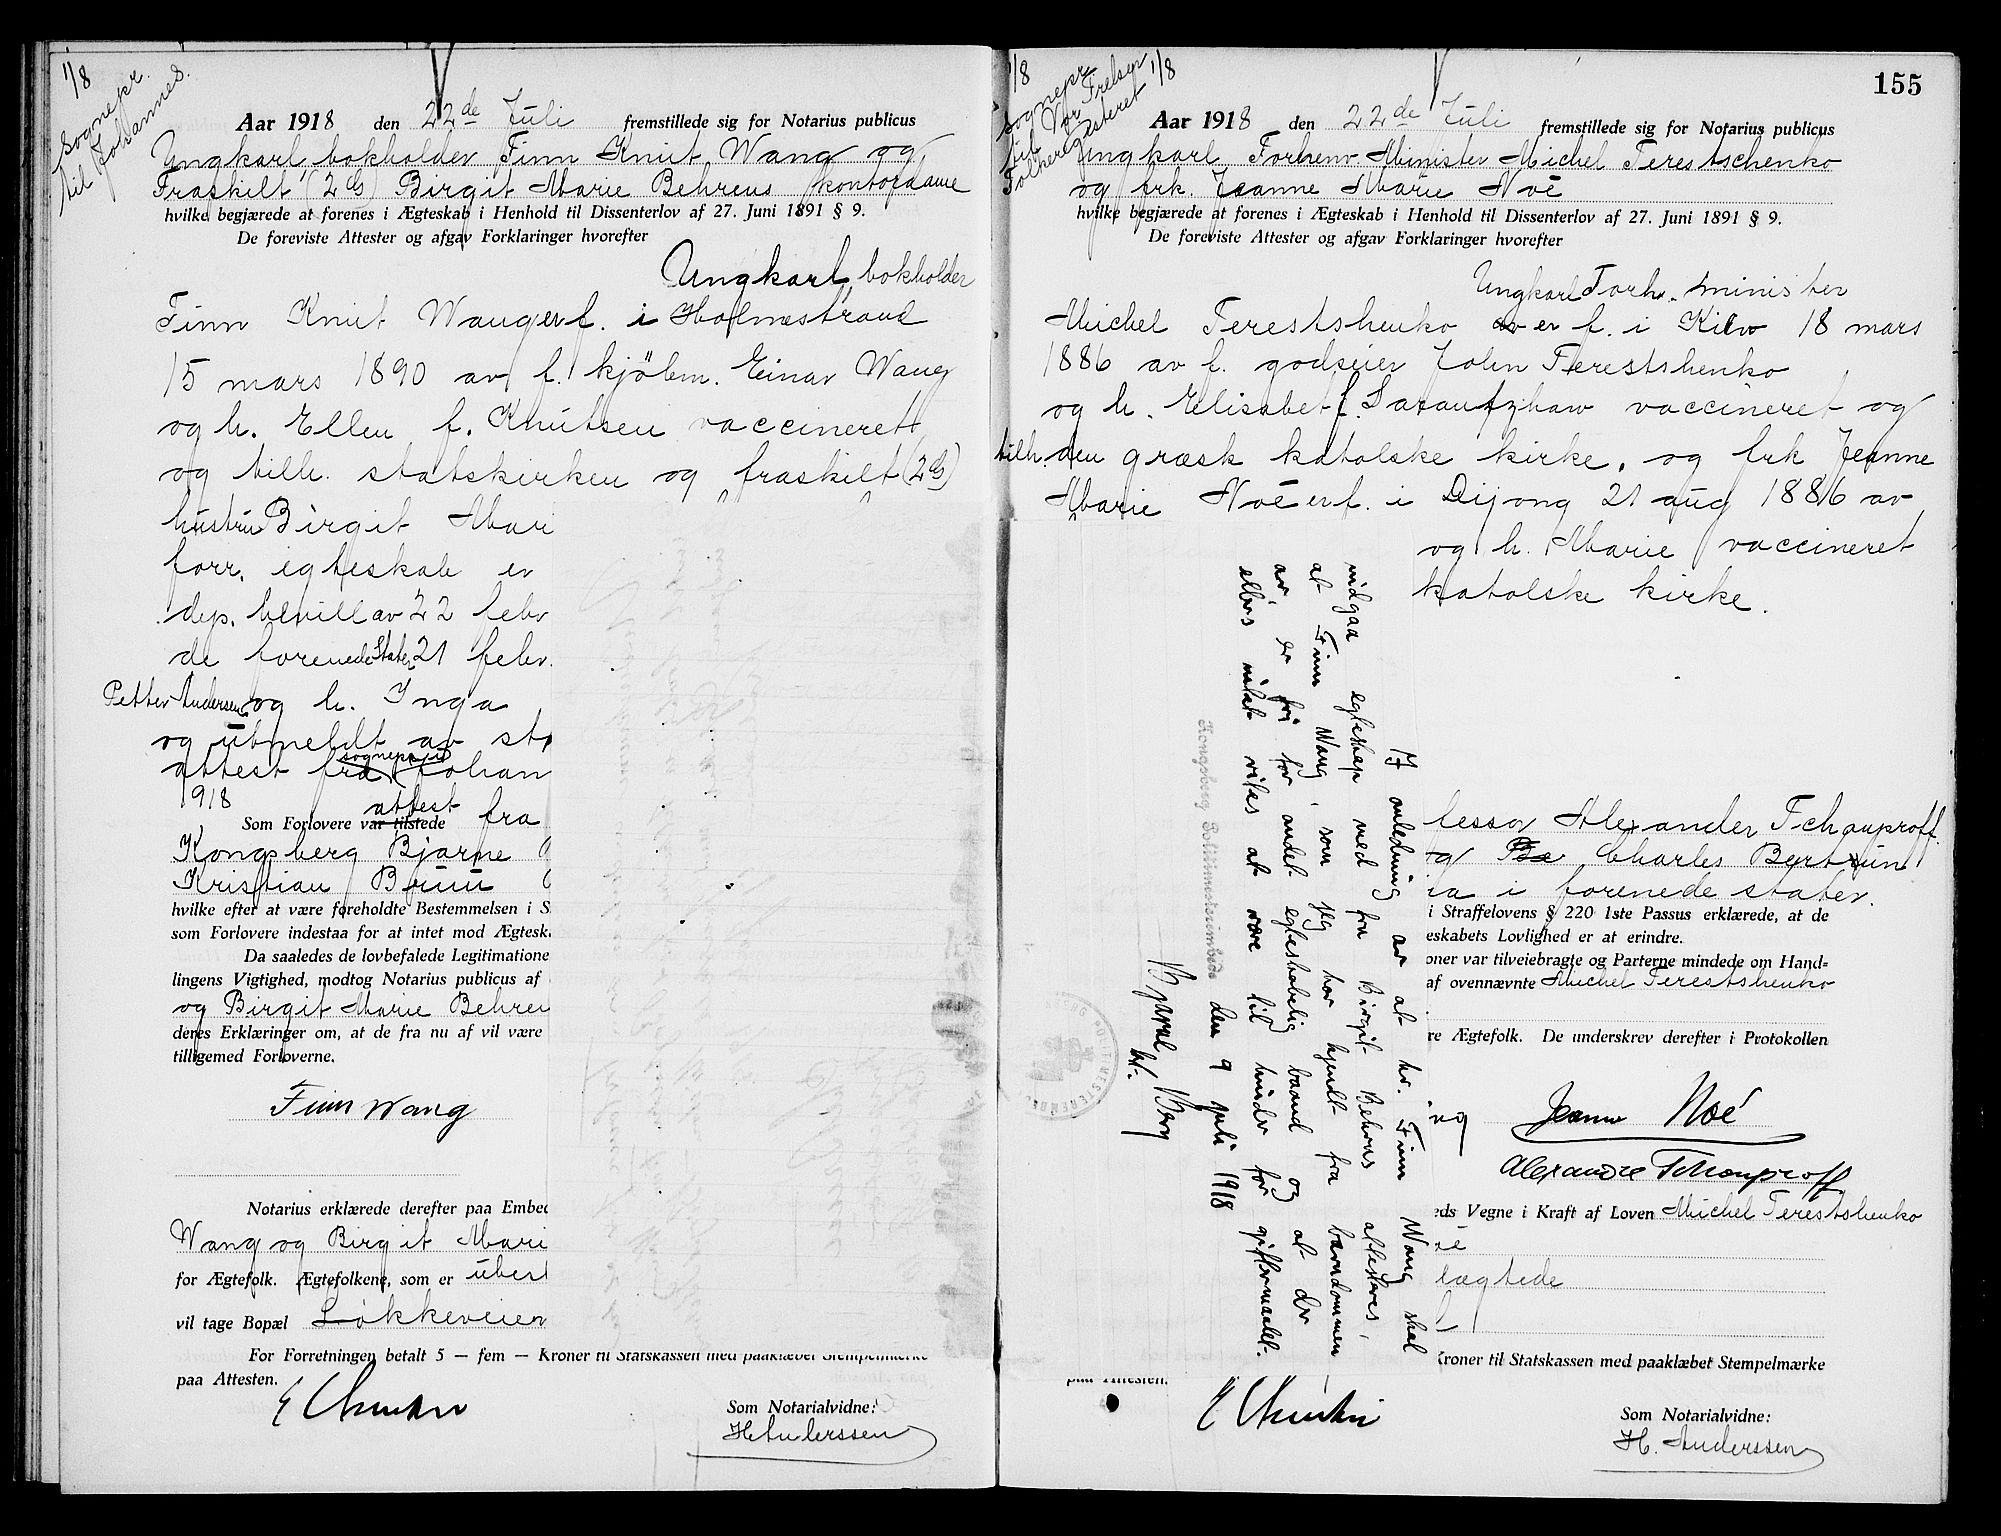 1/8
Sognepr.
til Johannes.
Aar 1918 den 22de Juli fremstillede sig for Notarius publicus
Ungkarl, bokholder Finn Knut Wang og
Fraskilt (2G) Birgit Marie Behrens kontordame
hvilke begjærede at forenes i Ægteskab i Henhold til Dissenterlov af 27. Juni 1891 § 9.
De foreviste Attester og afgav Forklaringer hvorefter
Ungkarl, bokholder
Finn Knut Wang er f. i Holmestrand
15 mars 1890 av f. kjöbm. Einar Wang
og h. Ellen f. Knutsen vaccineret
og tilh. statskirken og fraskilt (2G)
hustru Birgit Mari
forr. egteskab er
dep. bevill av 22 febr
de forenede Stater 21 febr.
Petter Andersen og h. Inga
og utmeldt av st
attest fra sognepr. i Johan
1918
Som Forlovere var tilstede attest fra
Kongsberg Bjarne
Kristian Bruu
hvilke efter at være foreholdte Bestemmelsen i S
som Forlovere indestaa for at intet mod Ægtesk
Da saaledes de lovbefalede Legitimatione
lingens Vigtighed, modtog Notarius publicus af
og Birgit Marie Behren
deres Erklæringer om, at de fra nu af vil være
tilligemed Forloverne.
Finn Wang
Notarius erklærede derefter paa Embed
Wang og Birgit Mari
for Ægtefolk. Ægtefolkene, som er ubesl
vil tage Bopæl Løkkeveien
For Forretningen betalt 5 — fem — Kroner til Statskassen med paaklæbet Stempelmærke
paa Attesten.
Som Notarialvidne:
H. Anderssen
155
1/8
1/8
sognepr
til Vor Frelser
Aar 1918 den 22de Juli fremstillede sig for Notarius publicus
Ungkarl Forhenv. Minister Michel Terestschenko
og frk. Jeanne Marie Noé
hvilke begjærede at forenes i Ægteskab i Henhold til Dissenterlov af 27. Juni 1891 § 9.
De foreviste Attester og afgav Forklaringer hvorefter
Ungkarl Forh. minister
Michel Terestshenko er f. i Kiev 18 mars
1886 av f. godseier John Terestshenko
og h. Elisabet f. vaccineret og
tilh. den græsk katolske kirke, og frk Jeanne
Marie Noé er f. i Dijong 21 aug 1886 av
og h. Marie vaccineret
katolske kirke.
fessor Alexander Tchouproff
og Charles
ia i forenede stater.
i Straffelovens § 220 1ste Passus erklærede, at de
eskabets Lovlighed er at erindre.
oner var tilveiebragte og Parterne mindede om Hand-
af ovennævnte Michel Terestshenko
re Ægtefolk. De underskrev derefter i Protokollen
Jeanne Noé
Alexandre Tchouproff
eds Vegne i Kraft af Loven Michel Terestshenko
é
lægtede
Kroner til Statskassen med paaklæbet Stempelmærke
paa Attesten.
Som Notarialvidne:
H. Anderssen
I anledning av at hr. Finn Wang skal
indgaa egteskap med fru Birgit Behrens attesteres,
at Finn Wang, som jeg har kjendt fra barndommen
av, er fri for andet egteskabelig baand og at der
ellers intet vites at være til hinder for giftermaalet.
Kongsberg Politimesterembede den 9 juli 1918